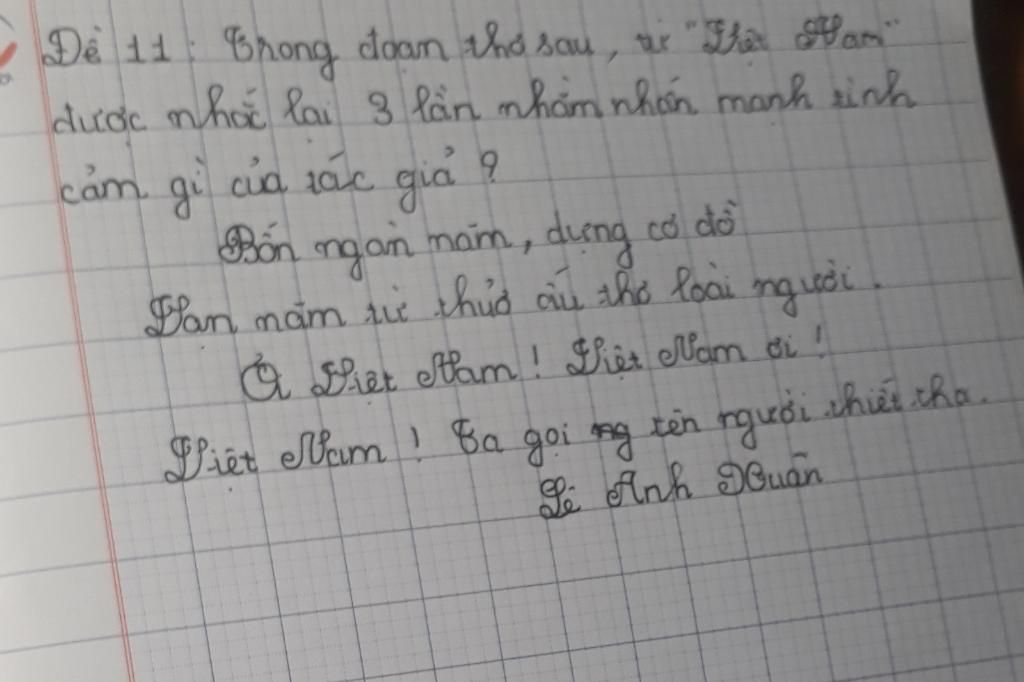 Đề 11: Trong đoạn thơ sau, từ "Việt Nam"
được nhắc lại 3 lần nhằm nhấn mạnh tình
cảm gì của tác giả?
Bốn ngàn năm, dựng cơ đồ
Vạn năm từ thuở ấu thơ loài người.
Ơi Việt Nam! Việt Nam ơi!
Việt Nam! Ta gọi tên người thiết tha.
Lê Anh Xuân